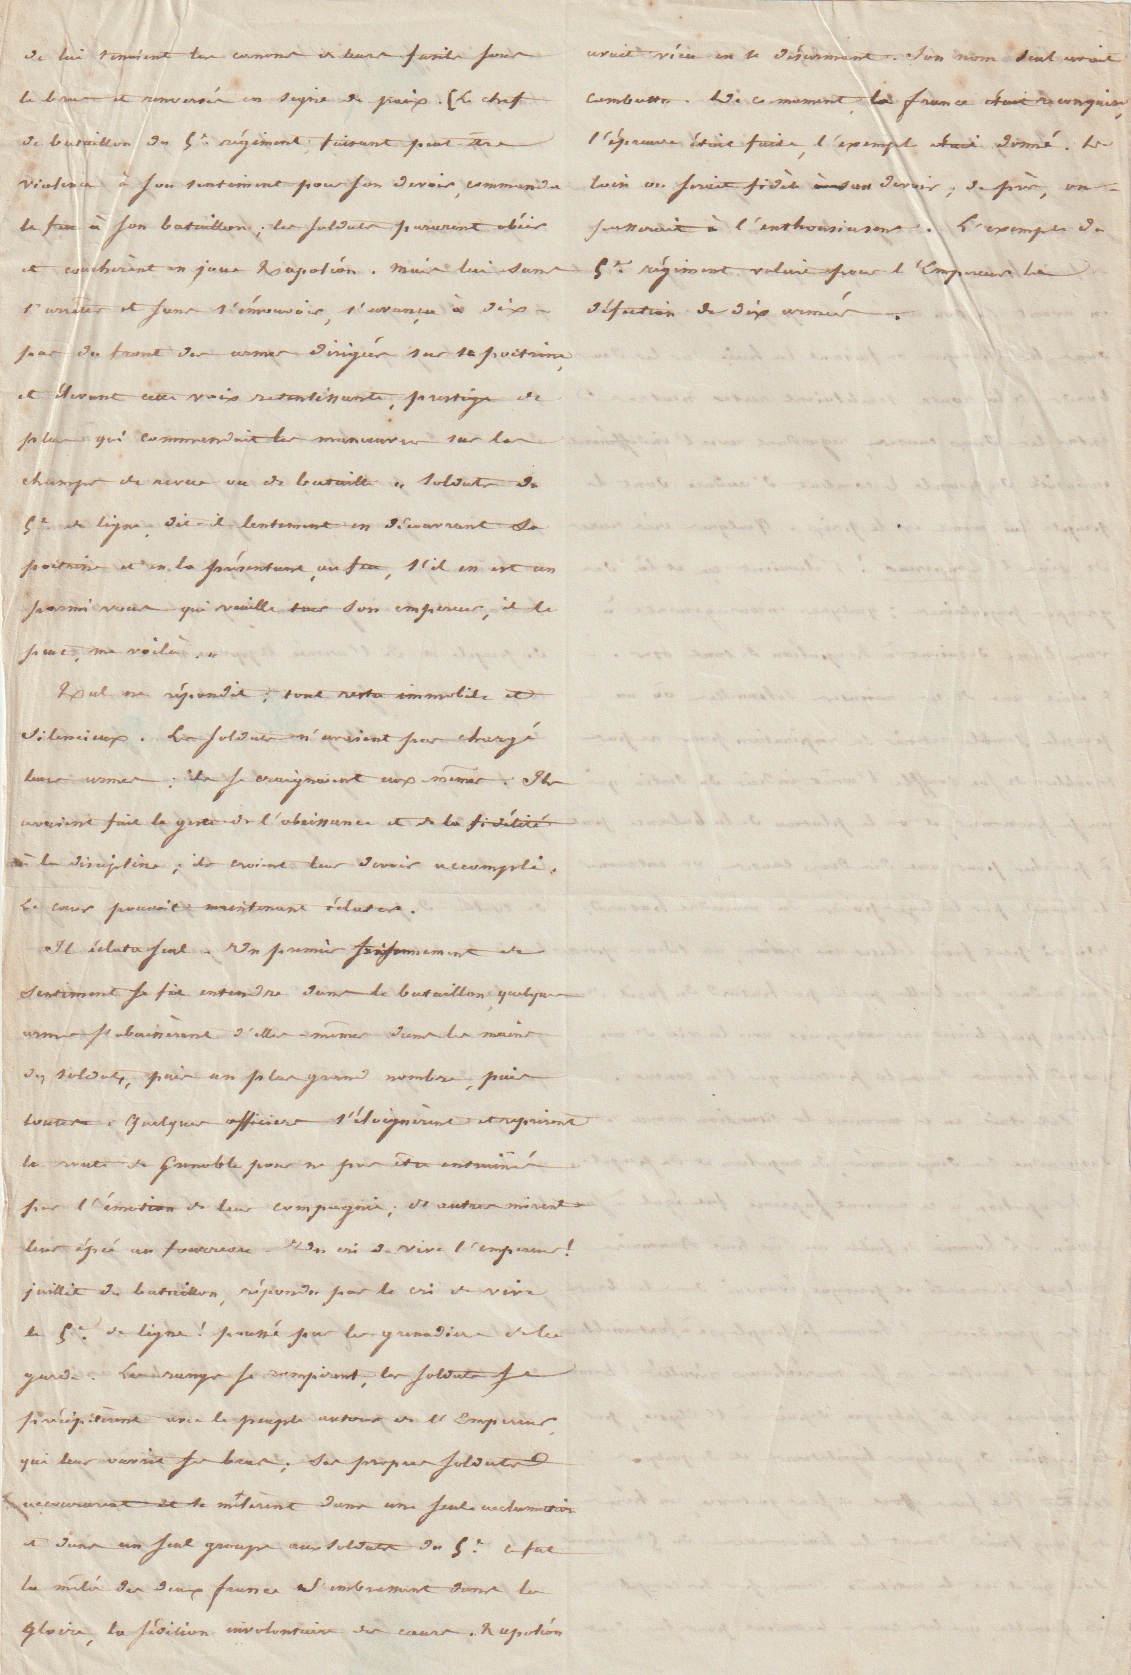 de lui tenaient les canons de leurs fusils sous
le bras et renversés en signe de paix. [Le chef
de bataillon du 5e régiment, faisant peut être
violence à son sentiment pour son devoir, commanda
le feu à son bataillon; les soldats parurent obéir
et couchèrent en joue Napoléon. Mais lui sans
s'arrêter et sans s'émouvoir, s'avança à dix
pas du front des armes dirigées sur sa poitrine,
et élevant cette voix retentissante, prestige de
plus qui commandait les manœuvres sur les
champs de revue ou de bataille « soldats du
5e de ligne, dit-il lentement en découvrant sa
poitrine et en la présentant au feu, s'il en est un
parmi vous qui veuille tuer son empereur, il le
peut, me voilà. »
Nul ne répondit; tout resta immobile et
silencieux. Les soldats n'avaient pas chargé
leurs armes; ils se craignaient eux mêmes. Ils
avaient fait le geste de l'obéissance et de la fidélité
à la discipline; ils croient leur devoir accompli.
Le cœur pouvait maintenant éclater.
Il éclata seul. Un premier frissonnement de
sentiment se fit entendre dans le bataillon, quelques
armes s'abaissèrent d'elles-mêmes dans les mains
des soldats, puis un plus grand nombre, puis
toutes. Quelques officiers s'éloignèrent et reprirent
la route de Grenoble pour ne pas être entrainés
par l'émotion de leur compagnie; d'autres mirent
leur épée au fourreau. Un cri de vive l'empereur!
jaillit du bataillon, répondu par le cri de vive
le 5e de ligne! poussé par les grenadiers de la
garde. Les rangs se rompirent, les soldats se
précipitèrent avec le peuple autour de l'Empereur,
qui leur ouvrit ses bras; ses propres soldats
accoururent et se mêlèrent dans une seule acclamation
et dans un seul groupe aux soldats du 5e ce fut
la mêlée des deux france s'embrassant dans la
gloire, la sédition involontaire des cœurs. Napoléon
avait vécu en se désarmant. Son nom seul avait
combattu. De ce moment, la france était reconquise,
l'épreuve était faite, l'exempl était donné. De
loin on serait fidèle à son devoir, de près, on
passerait à l'enthousiasme. L'exemple du
5e régiment valait pour l'Empereur la
défection de dix armées.